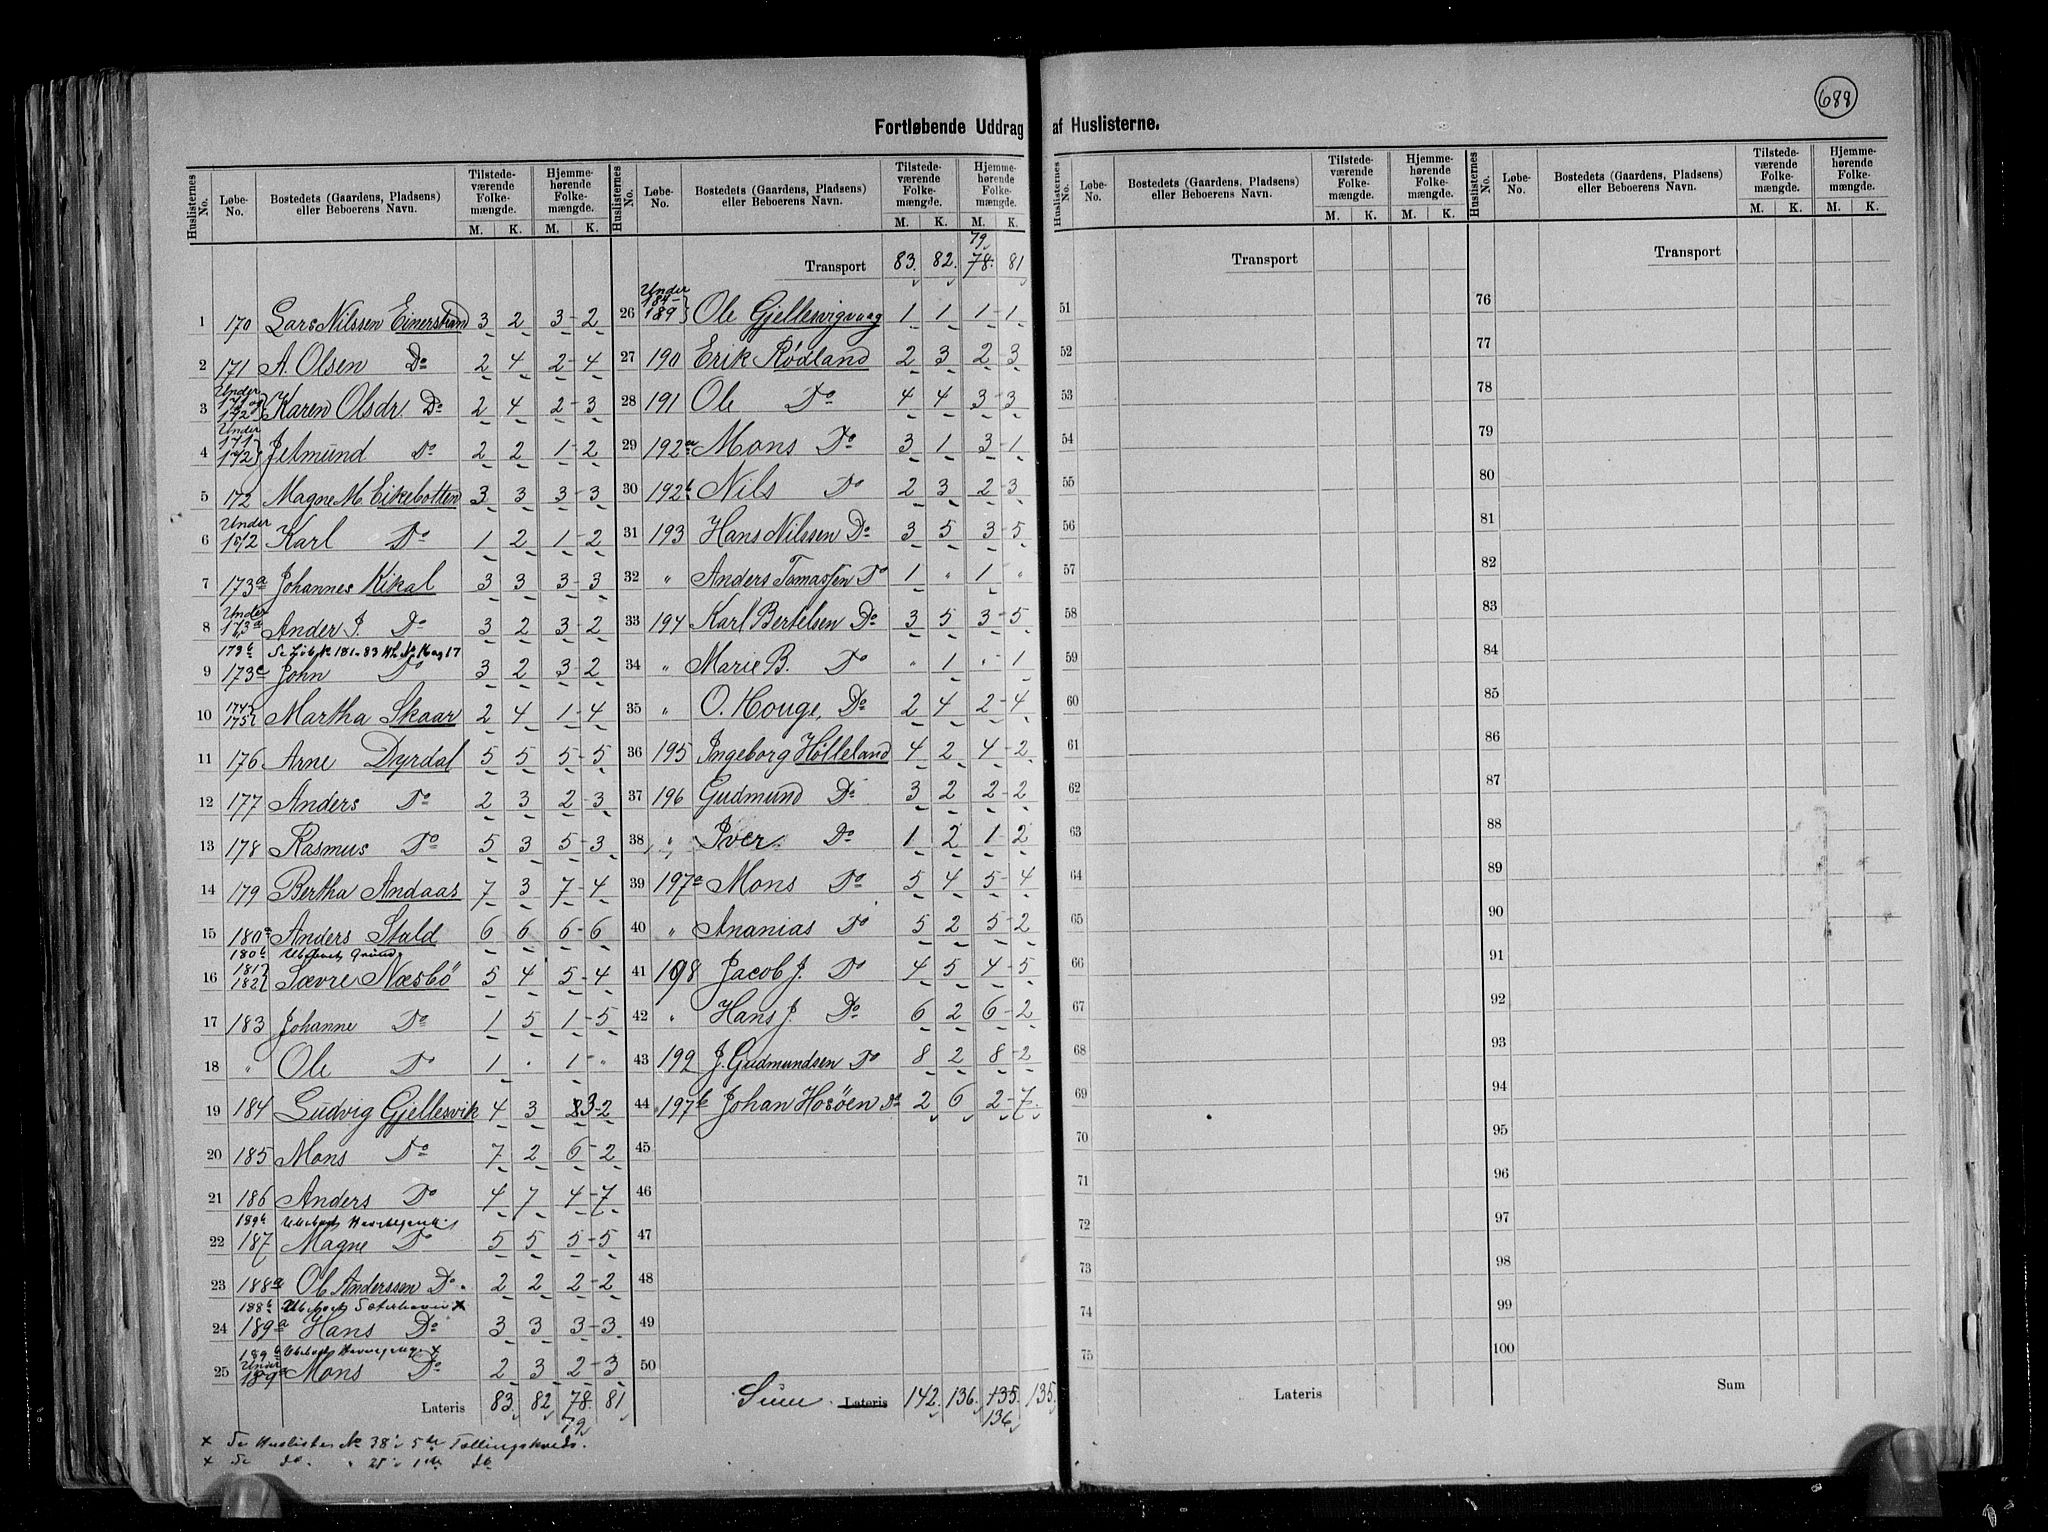 688
Fortløbende Uddrag af Huslisterne.
Huslisternes No. Løbe-No. Bostedets (Gaardens, Pladsens) eller Beboerens Navn. Tilstedeværende Folkemængde. Hjemmehørende Folkemængde.
M. K. M. K.
1 170 Lars Nilssen Einerstrand 3 2 3-2
2 171 A. Olsen Do 2 4 2-4
3 Under 171 og 172 Karen Olsdr. Do 2 4 2-3
4 Under 171 172 Jelmund Do 2 2 1-2
5 172 Magne M. Eikebotten 3 3 3-3
6 Under 172 Karl Do 1 2 1-2
7 173a Johannes Kikal 3 3 3-3
8 Under 173a Ander J. Do 3 2 3-2
173b Se Løb.N. 181-83 Hl. No 16 og 17
9 173c John Do 3 2 3-2
10 174 175 Martha Skaar 2 4 1-4
11 176 Arne Dyrdal 5 5 5-5
12 177 Anders Do 2 3 2-3
13 178 Rasmus Do 5 3 5-3
14 179 Bertha Andaas 7 3 7-4
15 180a Anders Stald 6 6 6-6
180b Ubebyet Grund
16 181 182 Sævre Næsbö 5 4 5-4
17 183 Johanne Do 1 5 1-5
18 " Ole Do 1 " 1-"
19 184 Ludvig Gjellesvik 4 3 3-2
20 185 Mons Do 7 2 6-2
21 186 Anders Do 4 7 4-7
189b Ubeboet
22 187 Magne Do 5 5 5-5
23 188a Ole Anderssen Do 2 2 2-2
188b Ubeboet x
24 189a Hans Do 3 3 3-3
189b Ubeboet x
25 Under 189a Mons Do 2 3 2-3
Lateris 83 82 78 81
79
x Se Huslister No 38 i 5te Tællingskreds.
x Se do. " 21 i 1ste do
Huslisternes No. Løbe-No. Bostedets (Gaardens, Pladsens) eller Beboerens Navn. Tilstedeværende Folkemængde. Hjemmehørende Folkemængde.
M. K. M. K.
79
Transport 83 82 78 81
26 Under 184-189 Ole Gjellesvigvaag 1 1 1-1
27 190 Erik Rødland 2 3 2-3
28 191 Ole Do 4 4 3-3
29 192a Mons Do 3 1 3-1
30 192b Nils Do 2 3 2-3
31 193 Hans Nilssen Do 3 5 3-5
32 " Anders Tomassen Do 1 " 1 "
33 194 Karl Bertelsen Do 3 5 3-5
34 " Marie B. Do " 1 "-1
35 " O. Houge, Do 2 4 2-4
36 195 Ingeborg Hølleland 4 2 4-2
37 196 Gudmund Do 3 2 2-2
38 " Iver Do 1 2 1-2
39 197a Mons Do 5 4 5-4
40 " Ananias Do 5 2 5-2
41 198 Jacob J. Do 4 5 4-5
42 " Hans J. Do 6 2 6-2
43 199 J. Gudmundsen Do 8 2 8-2
44 197b Johan Hosöen Do 2 6 2-7
45
46
47
48
49
50
Sum Lateris 142 136 135 135
136
Huslisternes No. Løbe-No. Bostedets (Gaardens, Pladsens) eller Beboerens Navn. Tilstedeværende Folkemængde. Hjemmehørende Folkemængde.
M. K. M. K.
Transport
51
52
53
54
55
56
57
58
59
60
61
62
63
64
65
66
67
68
69
70
71
72
73
74
75
Lateris
Huslisternes No. Løbe-No. Bostedets (Gaardens, Pladsens) eller Beboerens Navn. Tilstedeværende Folkemængde. Hjemmehørende Folkemængde.
M. K. M. K.
Transport
76
77
78
79
80
81
82
83
84
85
86
87
88
89
90
91
92
93
94
95
96
97
98
99
100
Sum